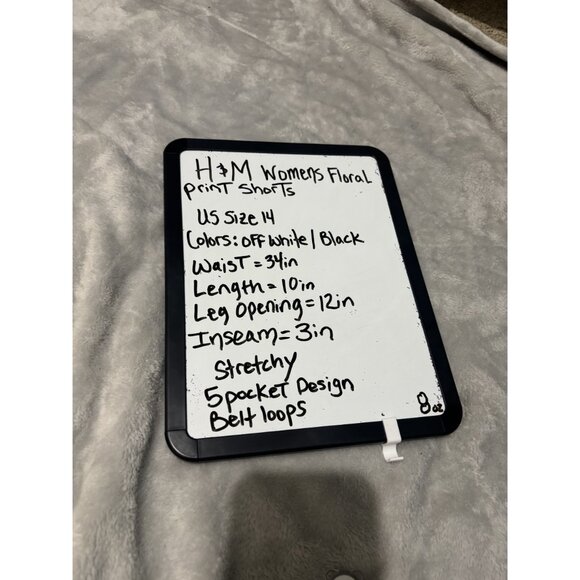 H&M Womens Floral
print shorts
US Size 14
Colors: Off White/Black
Waist = 34in
Length = 10in
Leg Opening = 12in
Inseam = 3in
Stretchy
5 pocket Design
Belt loops
8oz